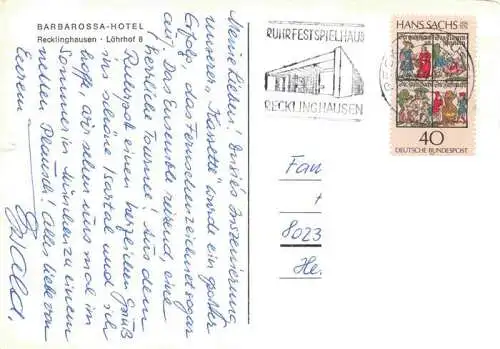 BARBAROSSA-HOTEL
Recklinghausen - Löhrhof 8
Meine Lieben! Enriés Inszenierung
unserer "Kassette" wurde ein großer
Erfolg, das Fernsehen zeichnet sogar
auf! Das Ensemble reizend, eine
herrliche Tournee! Aus dem
Ruhrpott einen herzlichen Gruß
ins schöne Isartal und ich
hoffe, wir sehen uns mal im
Sommer in München zu einem
netten Plausch! Alles liebe von
Eurem
Ewald.
RUHRFESTSPIELHAUS
RECKLINGHAUSEN
HANS SACHS
40
DEUTSCHE BUNDESPOST
Fam
8023